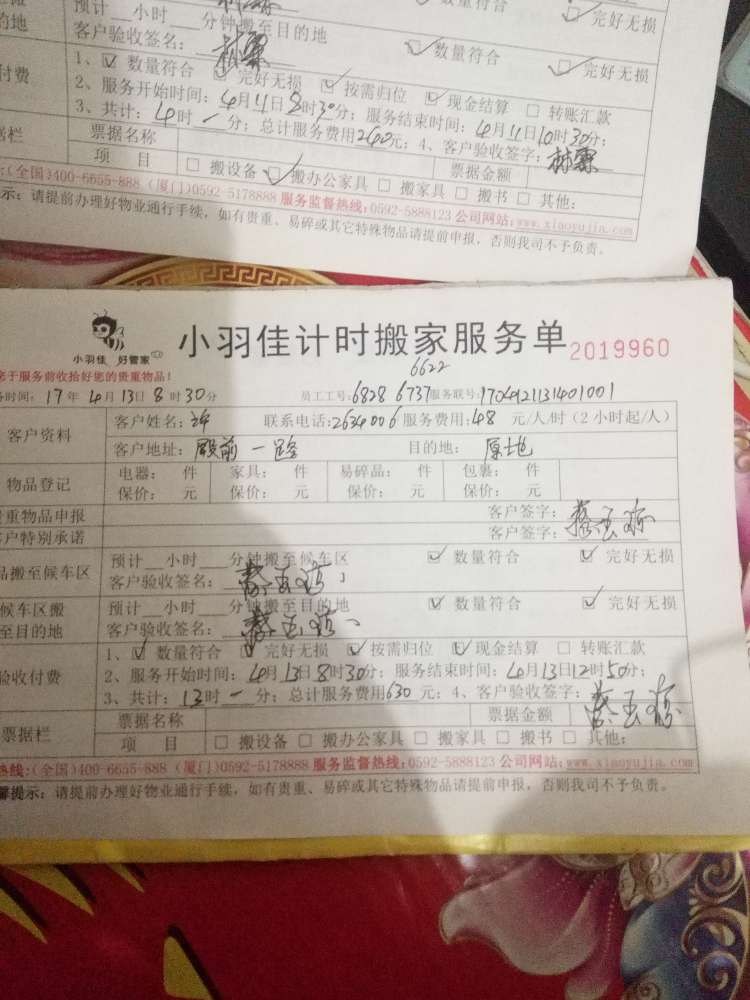 预计 小时 分钟搬至目的地 完好无损
的地 客户验收签名：林霖 数量符合 完好无损
付费 1、☑ 数量符合 ☑ 完好无损 ☑ 按需归位 ☑ 现金结算 □ 转账汇款
2、服务开始时间：4月11日8时30分；服务结束时间：4月11日10时30分；
3、共计：4时一分；总计服务费用200元；4、客户验收签字：林霖
据栏 票据名称 票据金额
项 目 □ 搬设备 ☑ 搬办公家具 □ 搬家具 □ 搬书 □ 其他：
:(全国)400-6655-888 (厦门)0592-5178888 服务监督热线:0592-5888123 公司网站:www.xiaoyujia.com
示：请提前办理好物业通行手续，如有贵重、易碎或其它特殊物品请提前申报，否则我司不予负责。
小羽佳 好管家
小羽佳计时搬家服务单 2019960
于服务前收拾好您的贵重物品！ 6622
务时间：17年4月13日8时30分 员工工号：6828 6737 服务联号：1704121131401001
客户资料 客户姓名： 联系电话：2634006 服务费用：48 元/人/时（2小时起/人）
客户地址：殿前一路 目的地：原地
物品登记 电器： 件 家具： 件 易碎品： 件 包裹： 件
保价： 元 保价： 元 保价： 元 保价： 元
贵重物品申报 客户签字：
客户特别承诺 客户签字：
品搬至候车区 预计 小时 分钟搬至候车区 ☑ 数量符合 ☑ 完好无损
客户验收签名：
候车区搬 预计 小时 分钟搬至目的地 ☑ 数量符合 ☑ 完好无损
至目的地 客户验收签名：
验收付费 1、☑ 数量符合 ☑ 完好无损 ☑ 按需归位 ☑ 现金结算 □ 转账汇款
2、服务开始时间：4月13日8时30分；服务结束时间：4月13日12时50分；
3、共计：13时一分；总计服务费用630元；4、客户验收签字：
票据栏 票据名称 票据金额
项 目 □ 搬设备 □ 搬办公家具 □ 搬家具 □ 搬书 □ 其他：
热线:(全国)400-6655-888 (厦门)0592-5178888 服务监督热线:0592-5888123 公司网站:www.xiaoyujia.com
馨提示：请提前办理好物业通行手续，如有贵重、易碎或其它特殊物品请提前申报，否则我司不予负责。